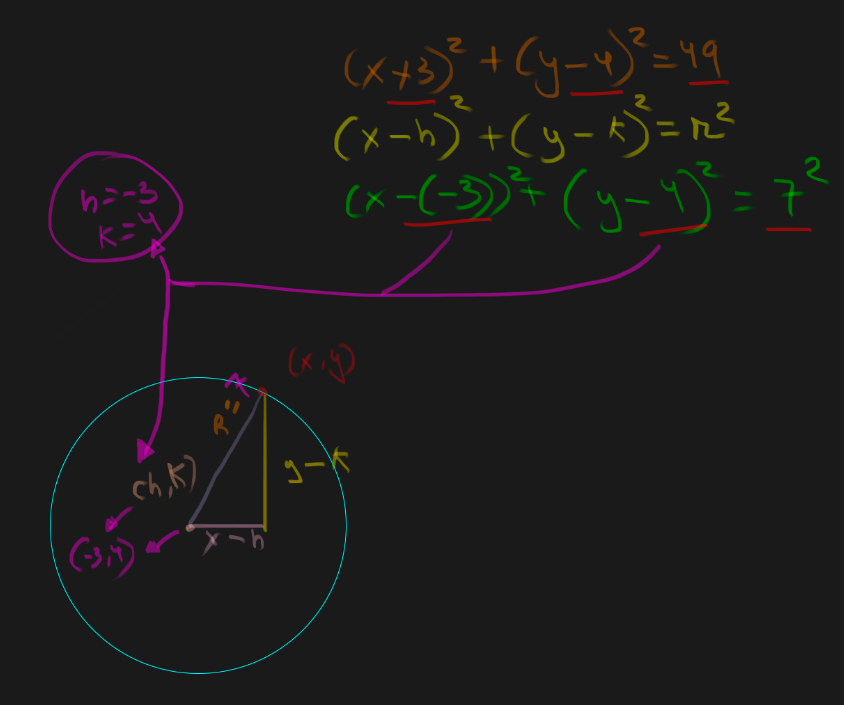 (x+3)²+(y-4)²=49
(x-h)²+(y-k)²=r²
(x-(-3))²+(y-4)²=7²
h=-3
k=4
(x,y)
R"
y-k
(h,k)
x-h
(-3,4)